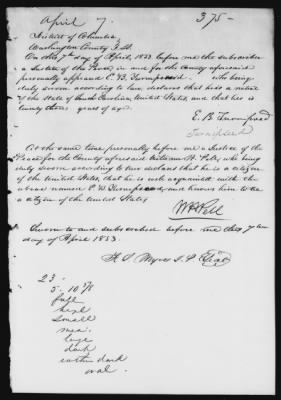 April 7.
375-
District of Columbia
Washington County S.S.
On this 7th day of April, 1853 before me the subscriber
a Justice of the Peace, in and for the County aforesaid
personally appeared E. B. Turnipseed. who being
duly sworn according to law, declares that he is a native
of the State of South Carolina, United States, and that he is
twenty three years of age.
E. B. Turnipseed
Turnipseed
At the same time personally before me a Justice of the
Peace for the County aforesaid William H. Pell, who being
duly sworn according to law declares that he is a citizen
of the United States, that he is well acquainted with the
above named E. B. Turnipseed, and knows him to be
a citizen of the United States
Wm H Pell
Sworn to and subscribed before me this 7th
day of April 1853.
J.P.
23 -
5. 10 7/8
full
hazel
small
mea.
large
dark
rather dark
oval.